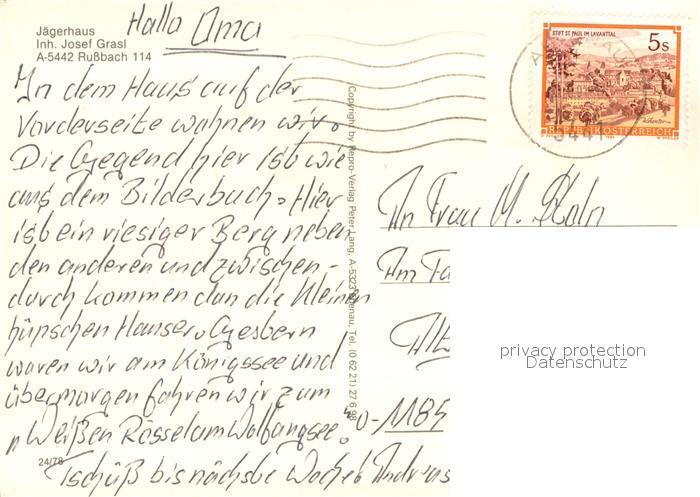 Hallo Oma
Jägerhaus
Inh. Josef Grasl
A-5442 Rußbach 114
In dem Haus auf der
Vorderseite wohnen wir.
Die Gegend hier ist wie
aus dem Bilderbuch. Hier
ist ein riesiger Berg neben
den anderen und zwischen-
durch kommen dan die kleinen
hüpschen Hauser. Gestern
waren wir am Königssee und
übermorgen fahren wir zum
"Weißen Rössel am Wolfangsee."
Tschüß bis nächste Woche
Andreas
24/78
Copyright by Repro-Verlag Peter Lang, A-5323
Tel. (0 62 21) 27 6 98
STIFT ST. PAUL IM LAVANTTAL
5 S
REPUBLIK ÖSTERREICH
An Frau M. Köln
Am
O-1185
privacy protection
Datenschutz